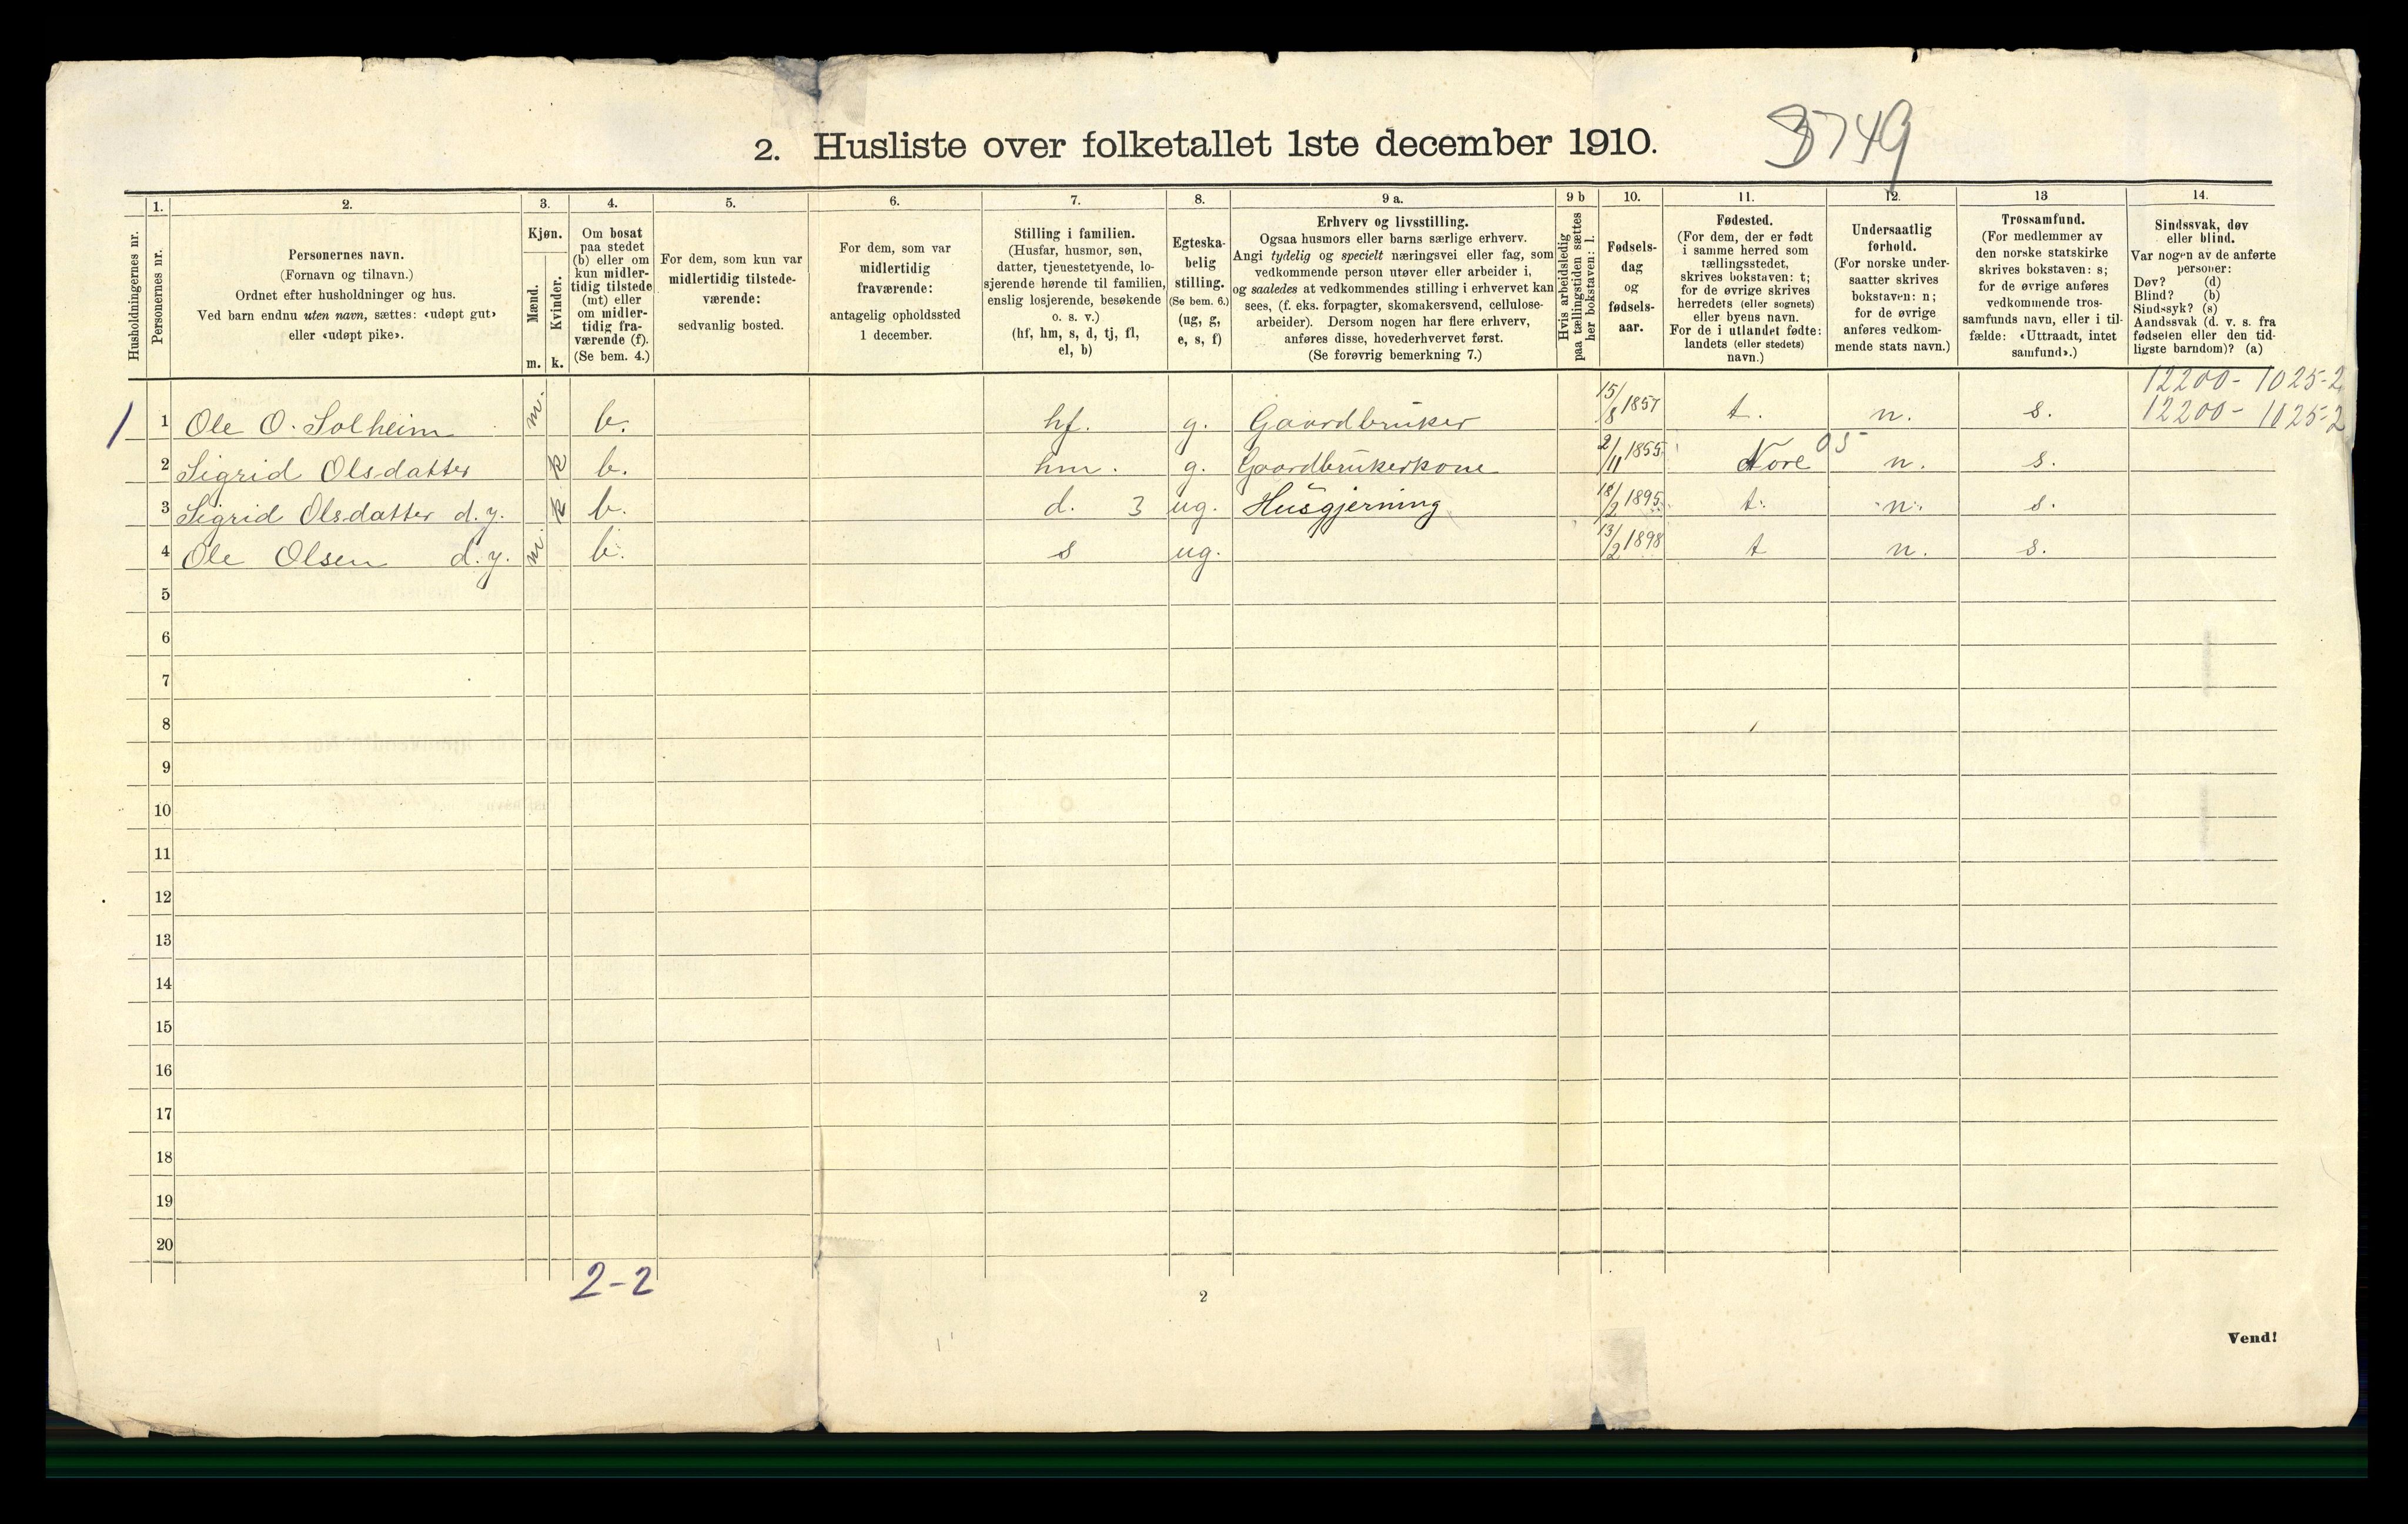 2. Husliste over folketallet 1ste december 1910.
3749
Husholdningernes nr.
1.
Personernes nr.
2.
Personernes navn.
(Fornavn og tilnavn.)
Ordnet efter husholdninger og hus.
Ved barn endnu uten navn, sættes: «udøpt gut»
eller «udøpt pike».
3.
Kjøn.
Mænd.
m.
Kvinder.
k.
4.
Om bosat
paa stedet
(b) eller om
kun midler-
tidig tilstede
(mt) eller
om midler-
tidig fra-
værende (f).
(Se bem. 4.)
5.
For dem, som kun var
midlertidig tilstede-
værende:
sedvanlig bosted.
6.
For dem, som var
midlertidig
fraværende:
antagelig opholdssted
1 december.
7.
Stilling i familien.
(Husfar, husmor, søn,
datter, tjenestetyende, lo-
sjerende hørende til familien,
enslig losjerende, besøkende
o. s. v.)
(hf, hm, s, d, tj, fl,
el, b)
8.
Egteska-
belig
stilling.
(Se bem. 6.)
(ug, g,
e, s, f)
9 a.
Erhverv og livsstilling.
Ogsaa husmors eller barns særlige erhverv.
Angi tydelig og specielt næringsvei eller fag, som
vedkommende person utøver eller arbeider i,
og saaledes at vedkommendes stilling i erhvervet kan
sees, (f. eks. forpagter, skomakersvend, cellulose-
arbeider). Dersom nogen har flere erhverv,
anføres disse, hovederhvervet først.
(Se forøvrig bemerkning 7.)
9 b
Hvis arbeidsledig
paa tællingstiden sættes
her bokstaven: l.
10.
Fødsels-
dag
og
fødsels-
aar.
11.
Fødested.
(For dem, der er født
i samme herred som
tællingsstedet,
skrives bokstaven: t;
for de øvrige skrives
herredets (eller sognets)
eller byens navn.
For de i utlandet fødte:
landets (eller stedets)
navn.)
12.
Undersaatlig
forhold.
(For norske under-
saatter skrives
bokstaven: n;
for de øvrige
anføres vedkom-
mende stats navn.)
13
Trossamfund.
(For medlemmer av
den norske statskirke
skrives bokstaven: s;
for de øvrige anføres
vedkommende tros-
samfunds navn, eller i til-
fælde: «Uttraadt, intet
samfund».)
14.
Sindssvak, døv
eller blind.
Var nogen av de anførte
personer:
Døv? (d)
Blind? (b)
Sindssyk? (s)
Aandssvak (d. v. s. fra
fødselen eller den tid-
ligste barndom)? (a)
12200 - 1025-2
1 1 Ole O. Solheim m. b. hf. g. Gaardbruker 15/8 1857 t. n. s. 12200 - 1025-2
2 Sigrid Olsdatter k b. hm. g. Gaardbrukerkone 2/11 1855 Nore 05 n. s.
3 Sigrid Olsdatter d.y. k b. d. 3 ug. Husgjerning 18/2 1895 t. n. s.
4 Ole Olsen d.y. m. b. s ug. 13/2 1898 t n. s.
5
6
7
8
9
10
11
12
13
14
15
16
17
18
19
20
2-2
2
Vend!